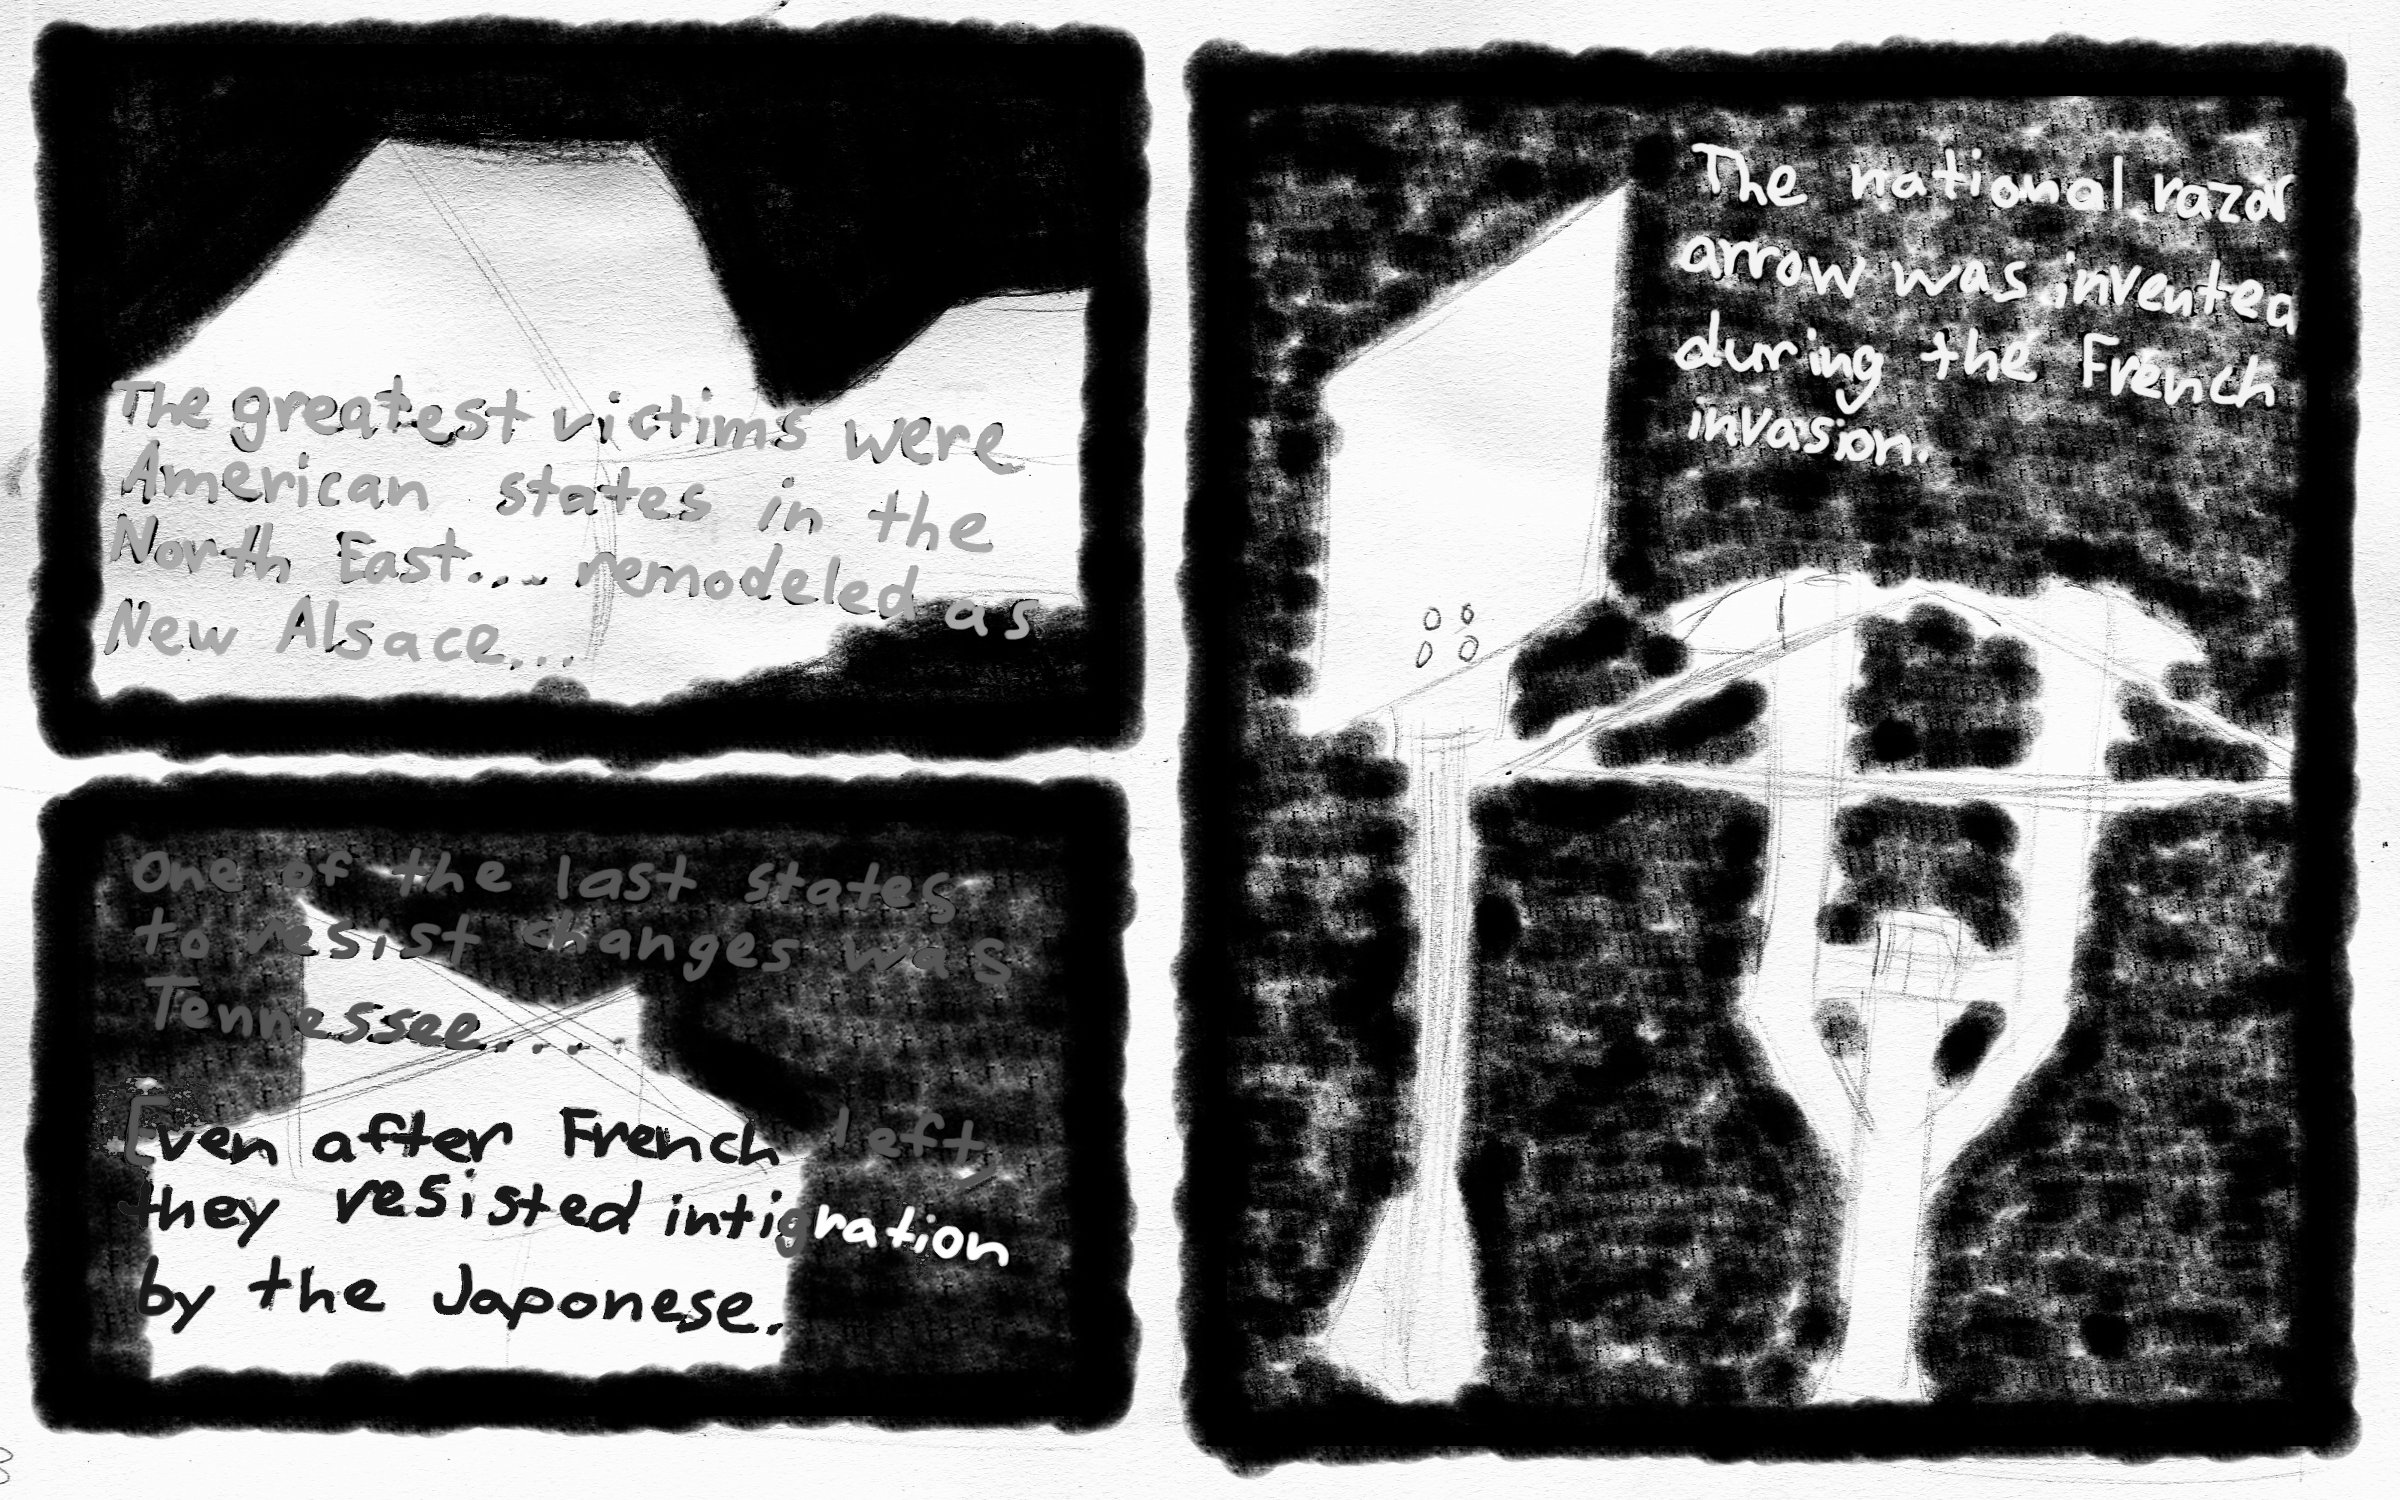 The greatest victims were
American states in the
North East.... remodeled as
New Alsace...
One of the last states
to resist changes was
Tennessee.....
Even after French left,
they resisted intigration
by the Japonese.
The national razor
arrow was invented
during the French
invasion.